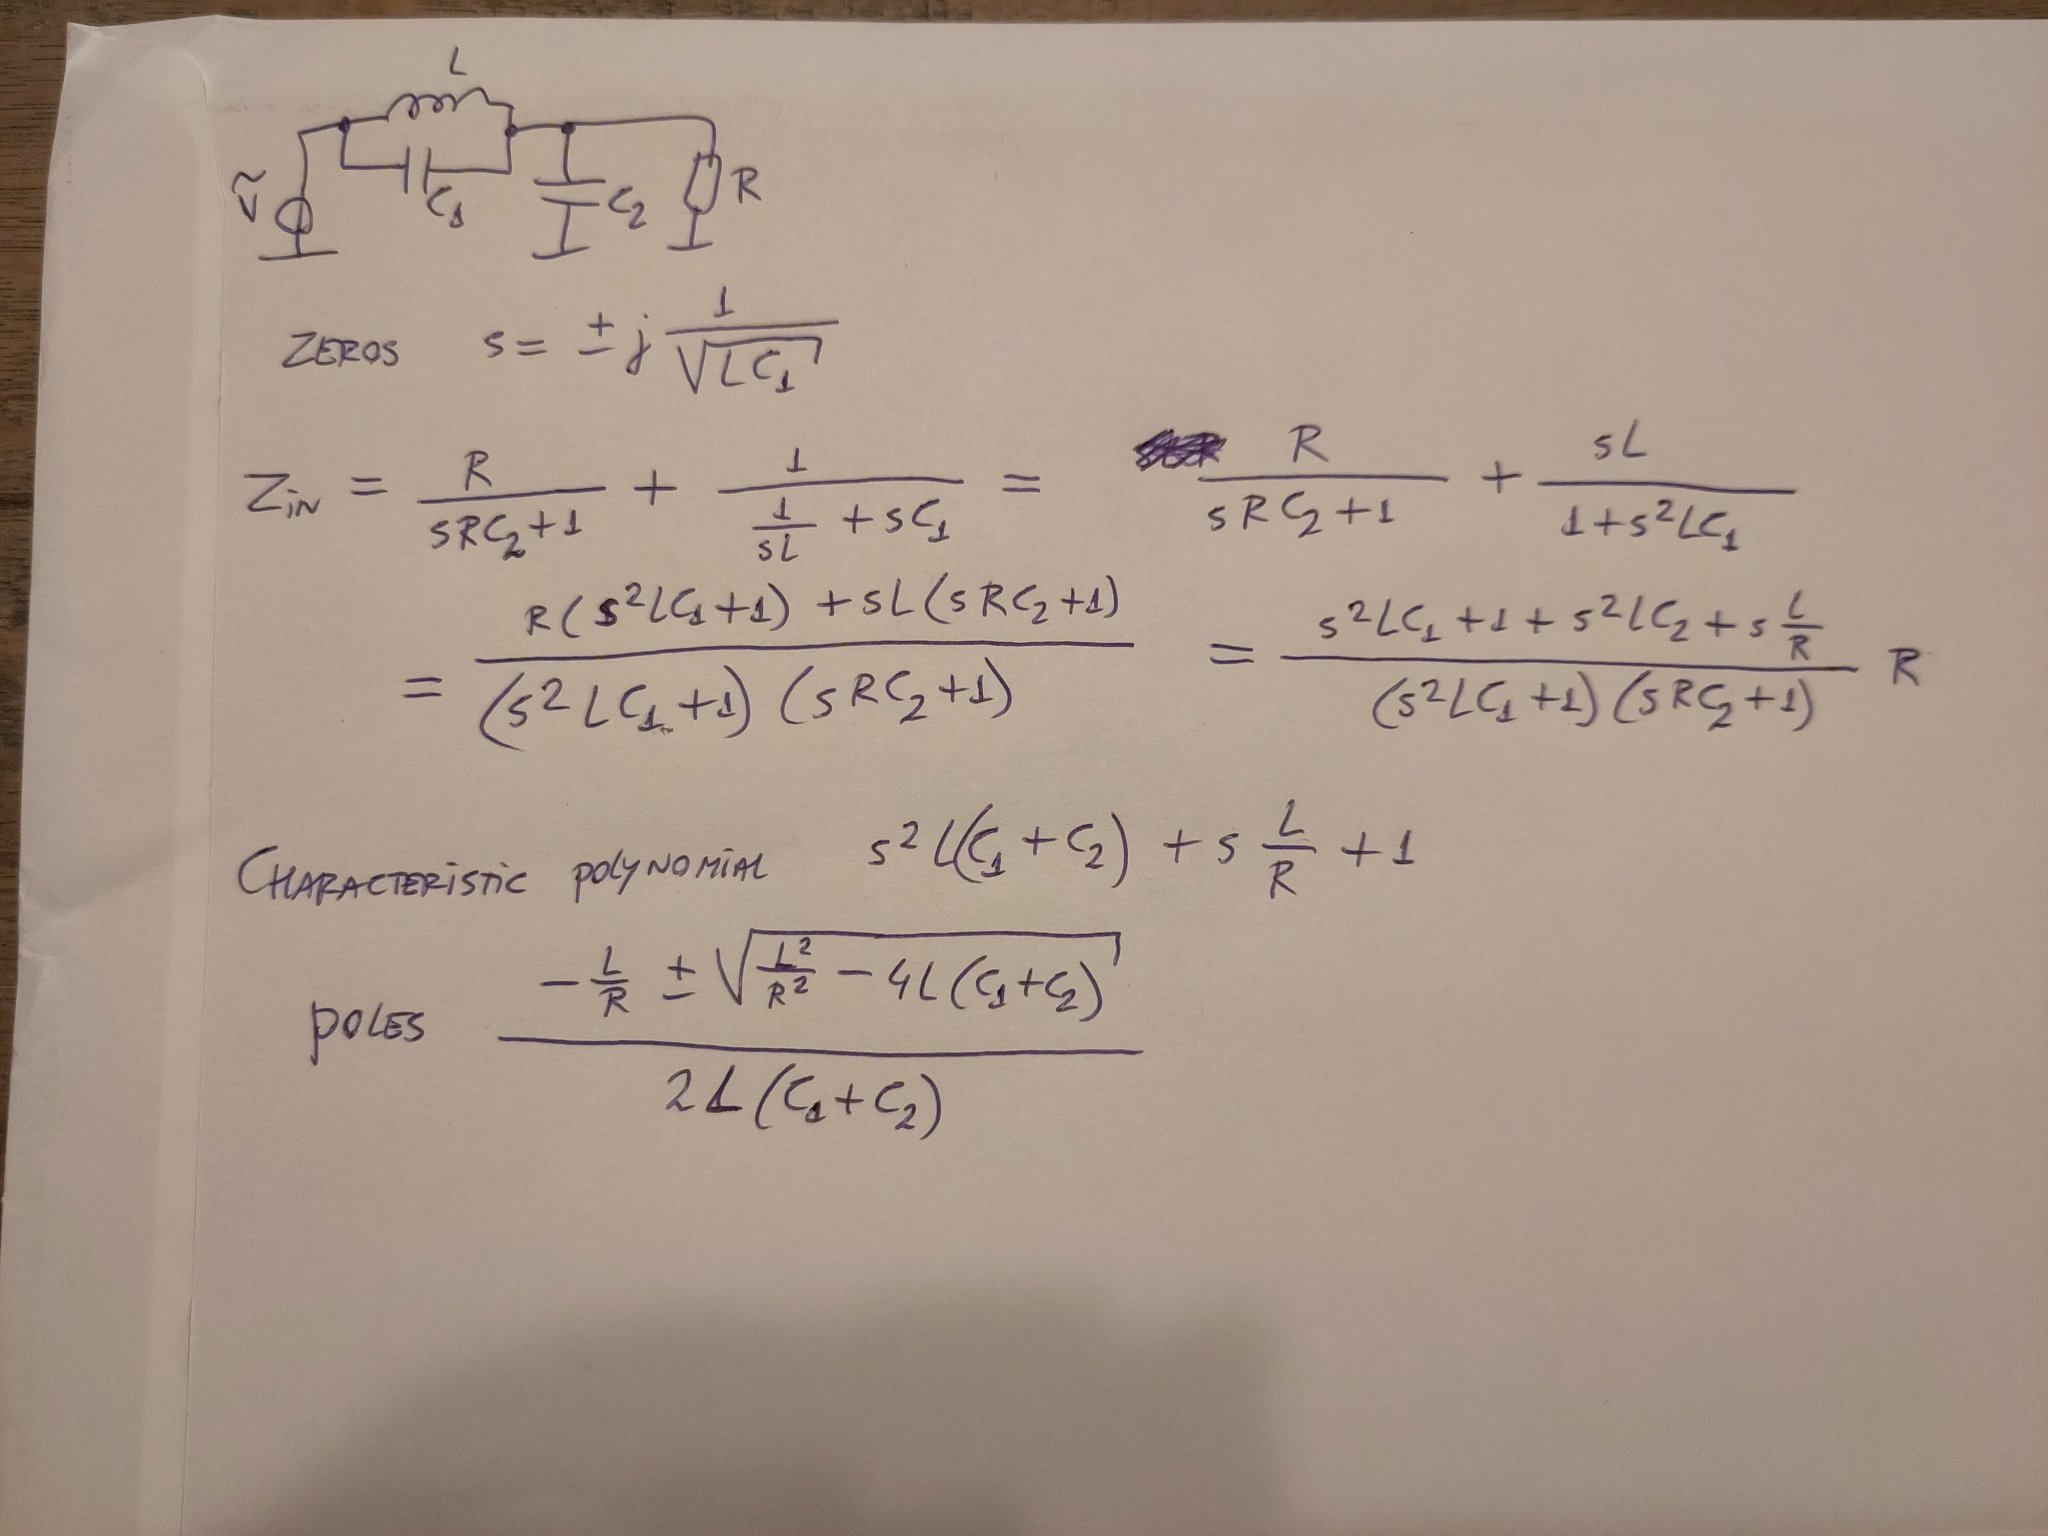 L
Ṽ C₁ C₂ R
ZEROS s = ± j 1/√(LC₁)
Zin = R/(sRC₂+1) + 1/(1/(sL) + sC₁) = R/(sRC₂+1) + sL/(1+s²LC₁)
= (R(s²LC₁+1) + sL(sRC₂+1))/((s²LC₁+1)(sRC₂+1)) = (s²LC₁+1+s²LC₂+s L/R)/((s²LC₁+1)(sRC₂+1)) R
CHARACTERISTIC POLYNOMIAL s²L(C₁+C₂) + s L/R + 1
POLES (-L/R ± √(L²/R² - 4L(C₁+C₂)))/(2L(C₁+C₂))